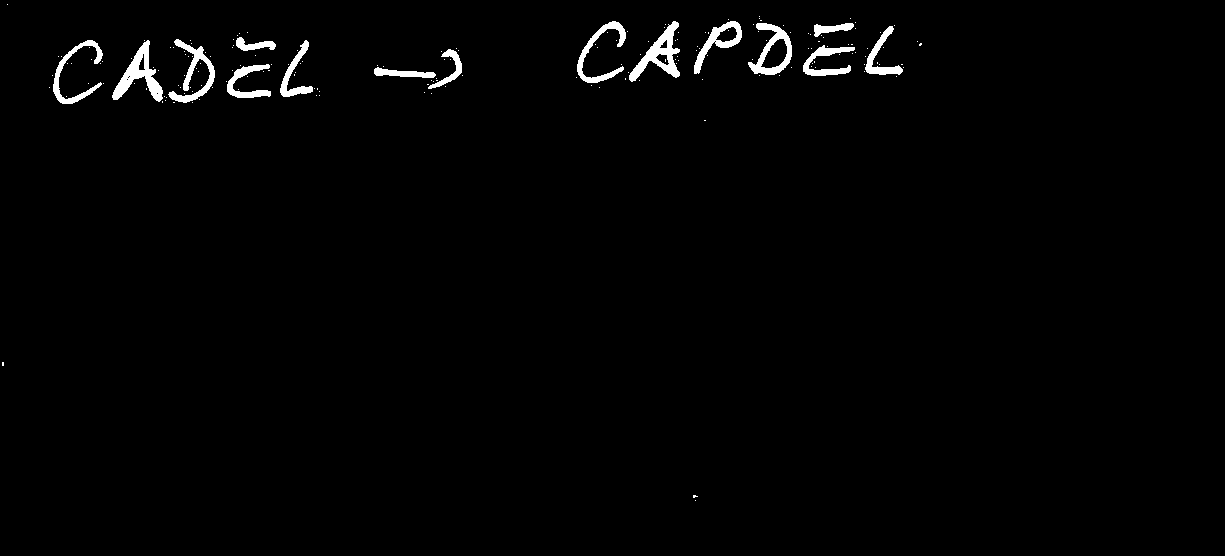 CADEL → CAPDEL